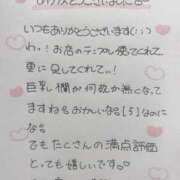 いつもありがとうございます(；；)
わッ！お店のテンプレ使ってくれて
更に足してくれてて…
巨乳欄が何故か無くて
ますねおかしいな【5】なのに
なな
でもたくさんの満点評価
とっても嬉しいです